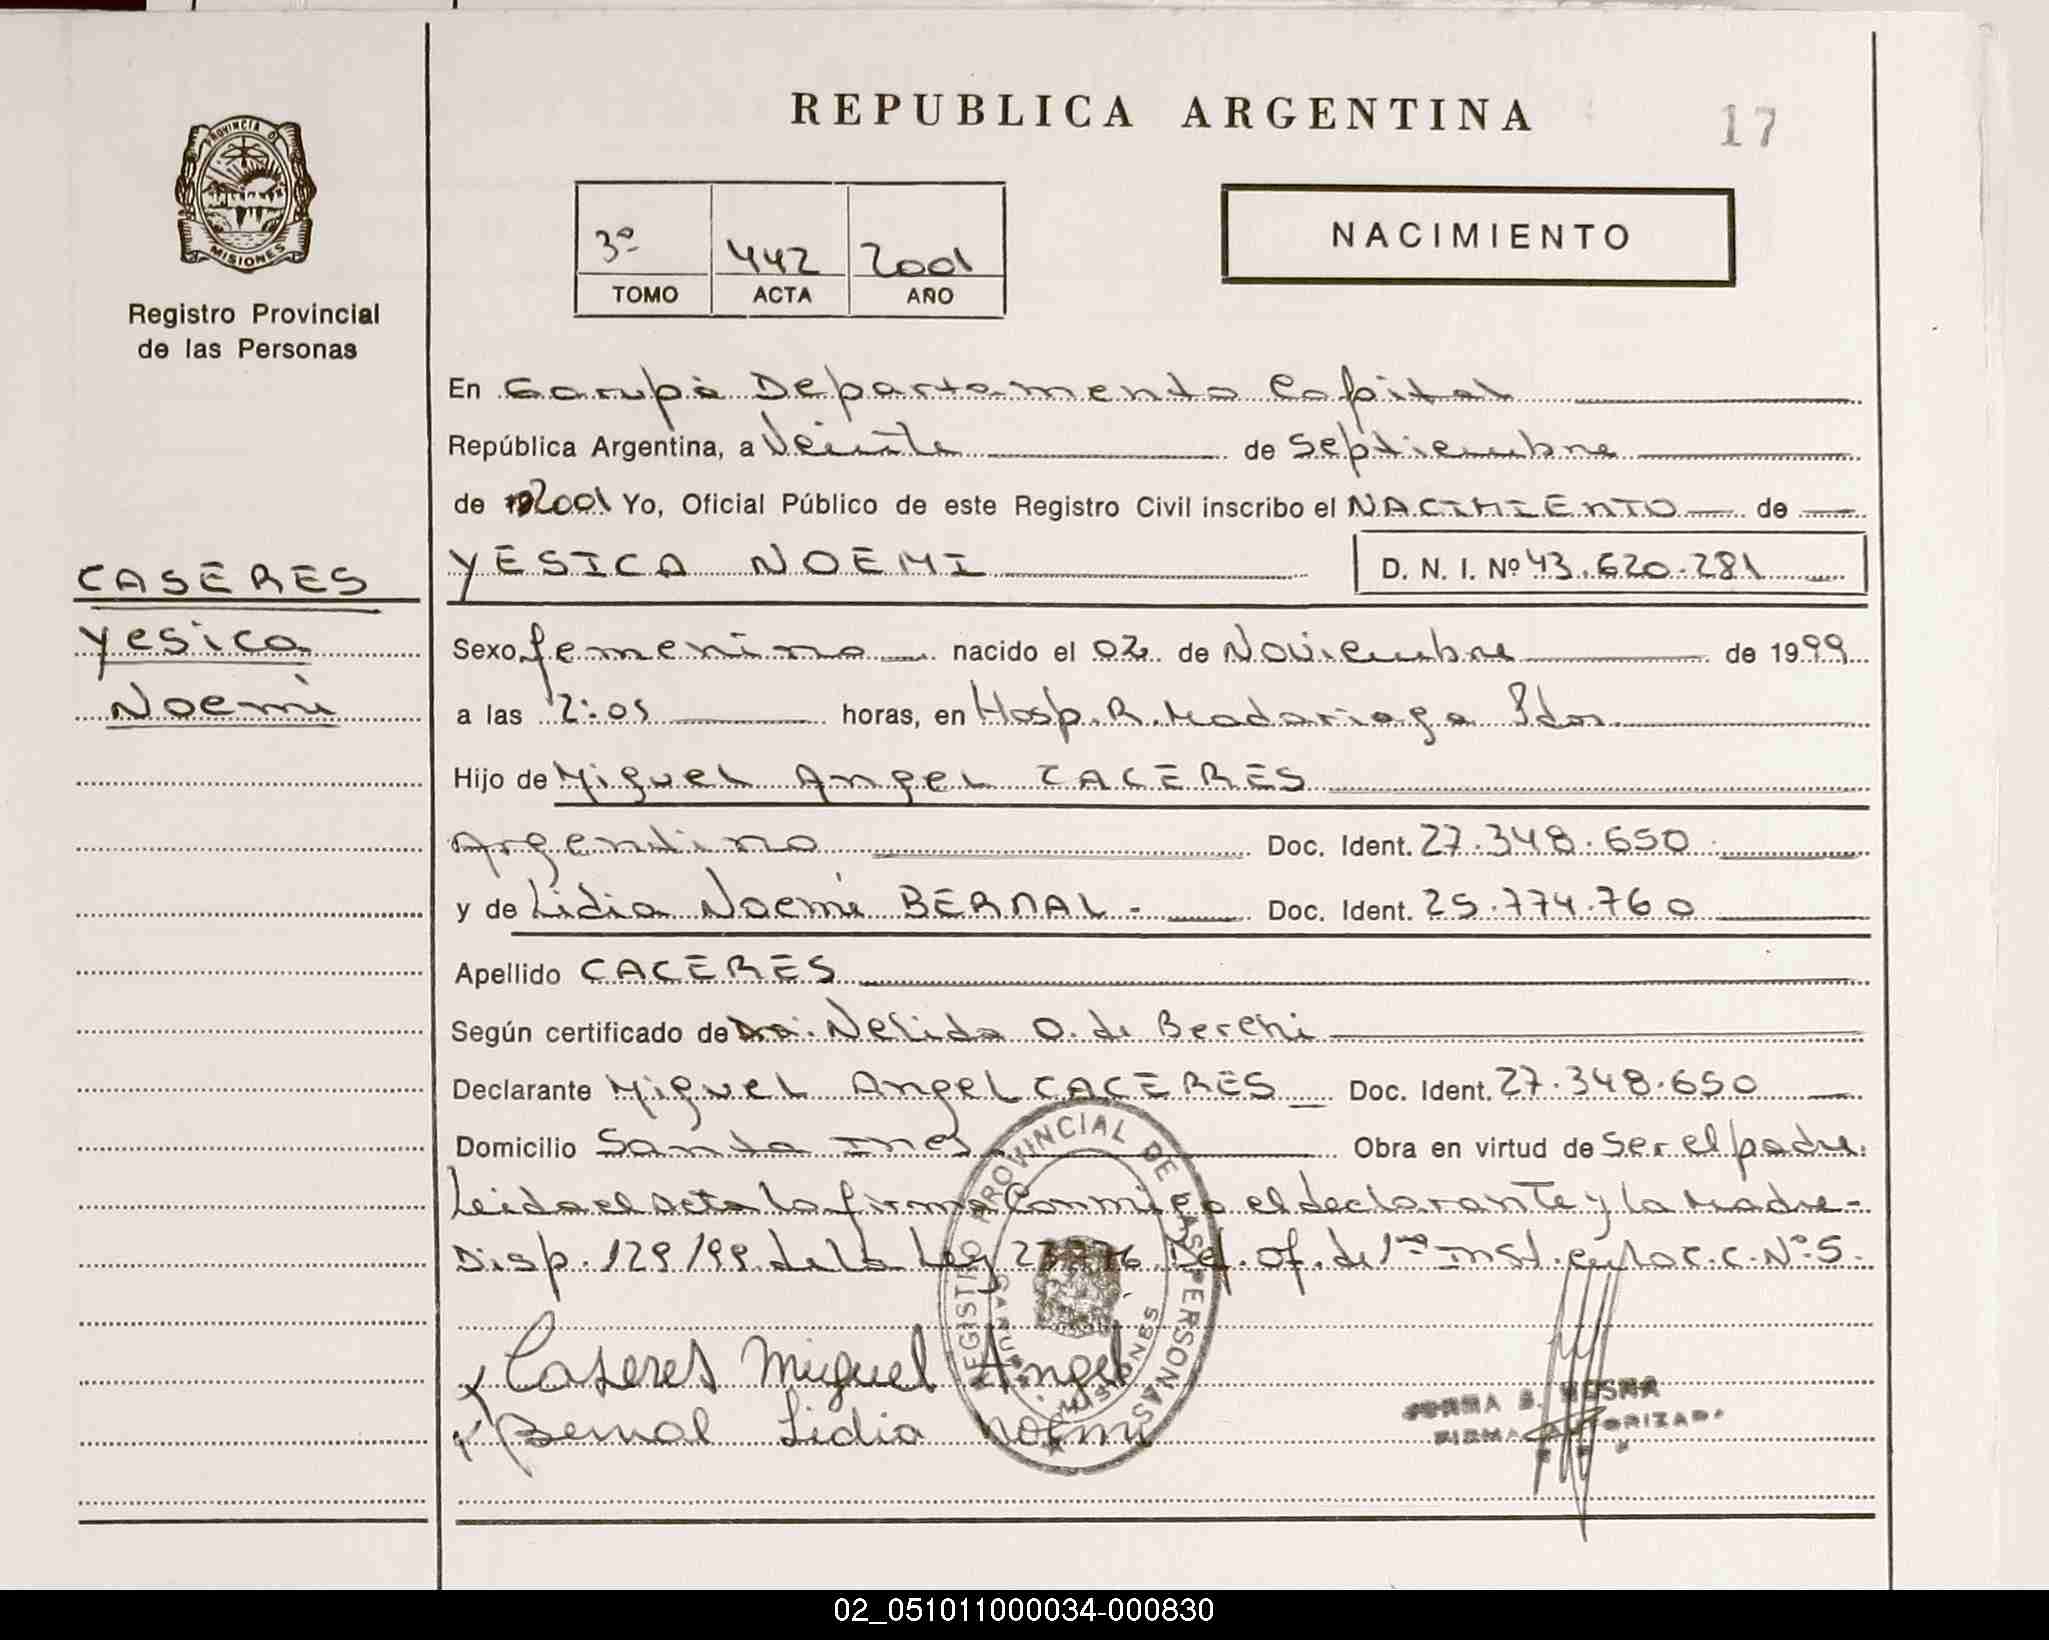 REPUBLICA ARGENTINA
17
PROVINCIA D
MISIONES
Registro Provincial
de las Personas
3º 442 2001
TOMO ACTA AÑO
NACIMIENTO
En Garupá Departamento Capital
República Argentina, a Veinte de Septiembre
de 2001 Yo, Oficial Público de este Registro Civil inscribo el NACIMIENTO de
CASERES
Yesica
Noemi
YESICA NOEMI D. N. I. Nº 43.620.281
Sexo femenino nacido el 02 de Noviembre de 1999
a las 12:05 horas, en Hosp. R. Madariaga Pdas.
Hijo de Miguel Angel CACERES
Argentino Doc. Ident. 27.348.650
y de Lidia Noemi BERNAL - Doc. Ident. 25.774.760
Apellido CACERES
Según certificado de Nelida O. de Berchi
Declarante Miguel Angel CACERES Doc. Ident. 27.348.650
Domicilio Santa Ines Obra en virtud de Ser el padre.
Leida el acta la firma Conmigo el declarante y la Madre-
Disp. 129/99 de la Ley Def. Of. de 1ra Inst. en lo C. C. Nº 5.
REGISTRO PROVINCIAL DE LAS PERSONAS
MISIONES
Caseres Miguel Angel
Bernal Lidia Noemi
02_051011000034-000830